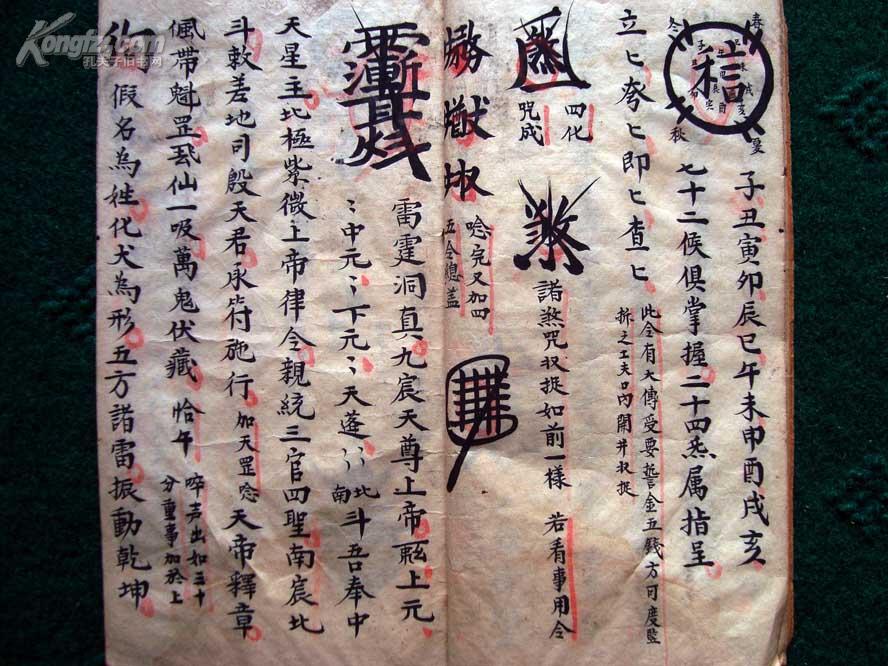 Kongfz.com
孔夫子旧书网
春
夏
秋
冬
子丑寅卯辰巳午未申酉戌亥
七十二候俱掌握二十四炁属指呈
立匕夸匕即匕查匕
此令有大傳受要誓金五錢方可度監
拆之工夫口內開井収捉
四化
咒成
諸煞咒収捉如前一樣 若看事用令
唸完又加四
五令總盖
雷霆洞真九宸天尊上帝 上元
〻中元〻下元〻天蓬〻北南斗吾奉中
天星主北極紫微上帝律令親統三官四聖南宸北
斗敕差地司殷天君承符施行 加天罡唸 天帝釋章
佩帶魁罡 仙一吸萬鬼伏藏 恰午
啐声出如三十
分重事加於上
假名為姓化犬為形五方諸雷振動乾坤